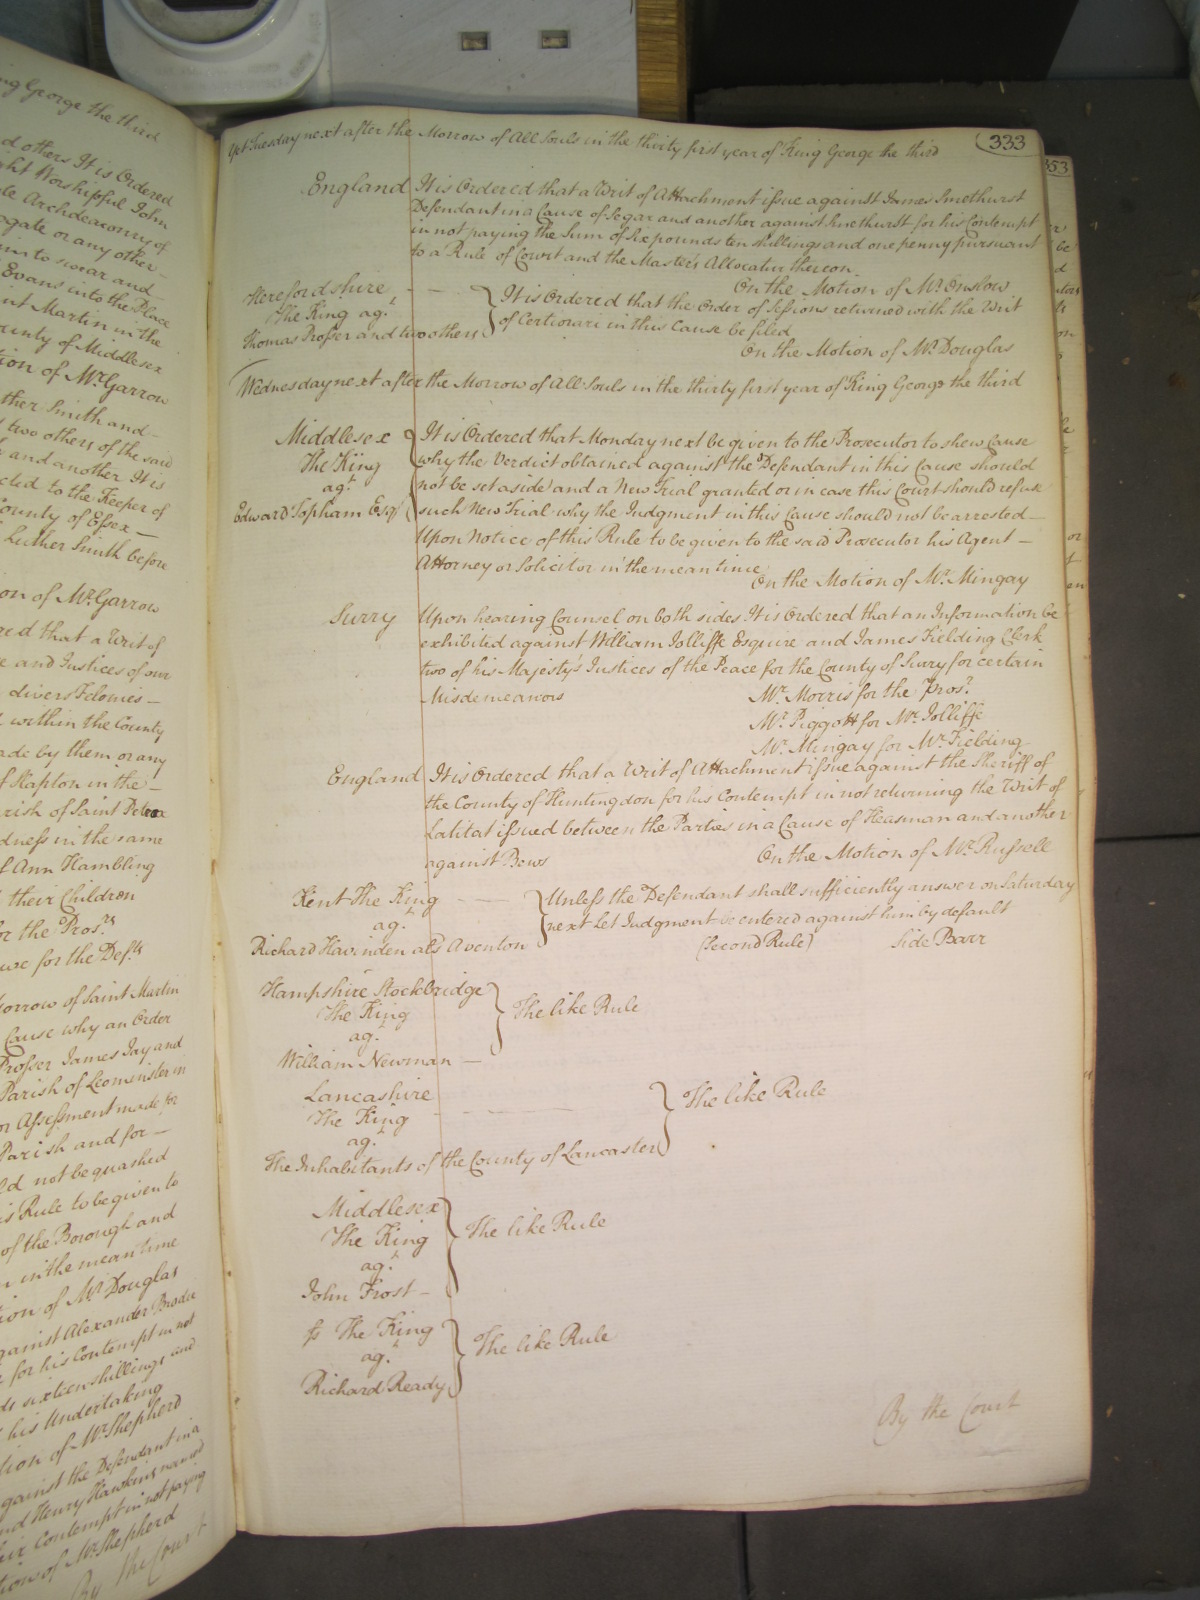 333
Yet Tuesday next after the Morrow of All Souls in the thirty first year of King George the third
England It is Ordered that a Writ of Attachment issue against James Smethurst
Defendant in a Cause of Segar and another against Smethurst for his Contempt
in not paying the Sum of Six pounds ten shillings and one penny pursuant
to a Rule of Court and the Masters Allocatur thereon
On the Motion of Mr. Onslow
Herefordshire
The King agt.
Thomas Prosser and two others
It is Ordered that the Order of Sessions returned with the Writ
of Certiorari in this Cause be filed
On the Motion of Mr. Douglas
Wednesday next after the Morrow of All Souls in the thirty first year of King George the third
Middlesex
The King
agt.
Edward Topham Esqr.
It is Ordered that Monday next be given to the Prosecutor to shew Cause
why the Verdict obtained against the Defendant in this Cause should
not be set aside and a New Trial granted or in case this Court should refuse
such New Trial why the Judgment in this Cause should not be arrested
Upon Notice of this Rule to be given to the said Prosecutor his Agent
Attorney or Solicitor in the mean time
On the Motion of Mr. Mingay
Surry Upon hearing Counsel on both sides It is Ordered that an Information be
exhibited against William Jolliffe Esquire and James Fielding Clerk
two of his Majesty's Justices of the Peace for the County of Surry for certain
Misdemeanors Mr. Morris for the Prosr.
Mr. Piggott for Mr. Jolliffe
Mr. Mingay for Mr. Fielding
England It is Ordered that a Writ of Attachment issue against the Sheriff of
the County of Huntingdon for his Contempt in not returning the Writ of
Latitat issued between the Parties in a Cause of Heasman and another
against Bews On the Motion of Mr. Russell
Kent The King
agt.
Richard Havinden als Aventon
Unless the Defendant shall sufficiently answer on Saturday
next let Judgment be entered against him by default
(Second Rule) Side Barr
Hampshire Stockbridge
The King
agt.
William Newman
The like Rule
Lancashire
The King
agt.
The Inhabitants of the County of Lancaster
The like Rule
Middlesex
The King
agt.
John Frost
The like Rule
The King
agt.
Richard Ready
The like Rule
By the Court
353
ng George the third
d others It is Ordered
ght Worshipful John
le Archdeaconry of
ogate or any other
him to swear and
Evans into the Place
int Martin in the
ounty of Middlesex
tion of Mr. Garrow
ther Smith and
two others of the said
and another It is
cted to the Keeper of
County of Essex
Luther Smith before
on of Mr. Garrow
red that a Writ of
e and Justices of our
divers Felonies
within the County
ade by them or any
f Stapton in the
rish of Saint Peter
dness in the same
f Ann Hambling
their Children
or the Prosrs.
we for the Defts
Morrow of Saint Martin
Cause why an Order
Prosser James Jay and
Parish of Leominster in
or Assessment made for
Parish and for
ld not be quashed
is Rule to be given to
of the Borough and
in the mean time
ion of Mr. Douglas
gainst Alexander Brodie
for his Contempt in not
ds sixteen shillings and
his Undertaking
tion of Mr. Shepherd
gainst the Defendant in a
nd Henry Hawkins named
eir Contempt in not paying
tion of Mr. Shepherd
By the Court